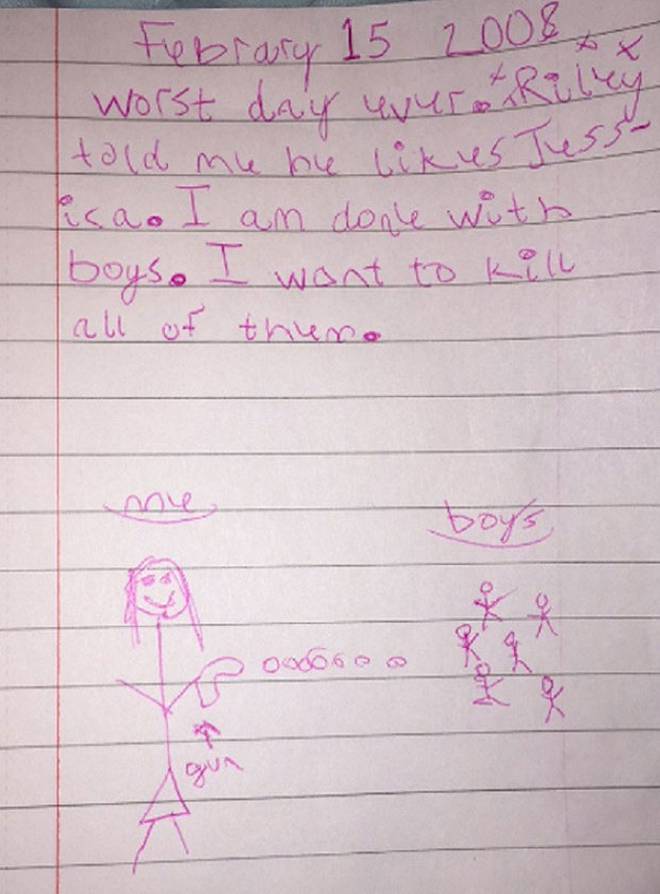 Febrary 15 2008
worst day ever. Riley
told me he likes Jess-
ica. I am done with
boys. I want to kill
all of them.
me
boys
gun